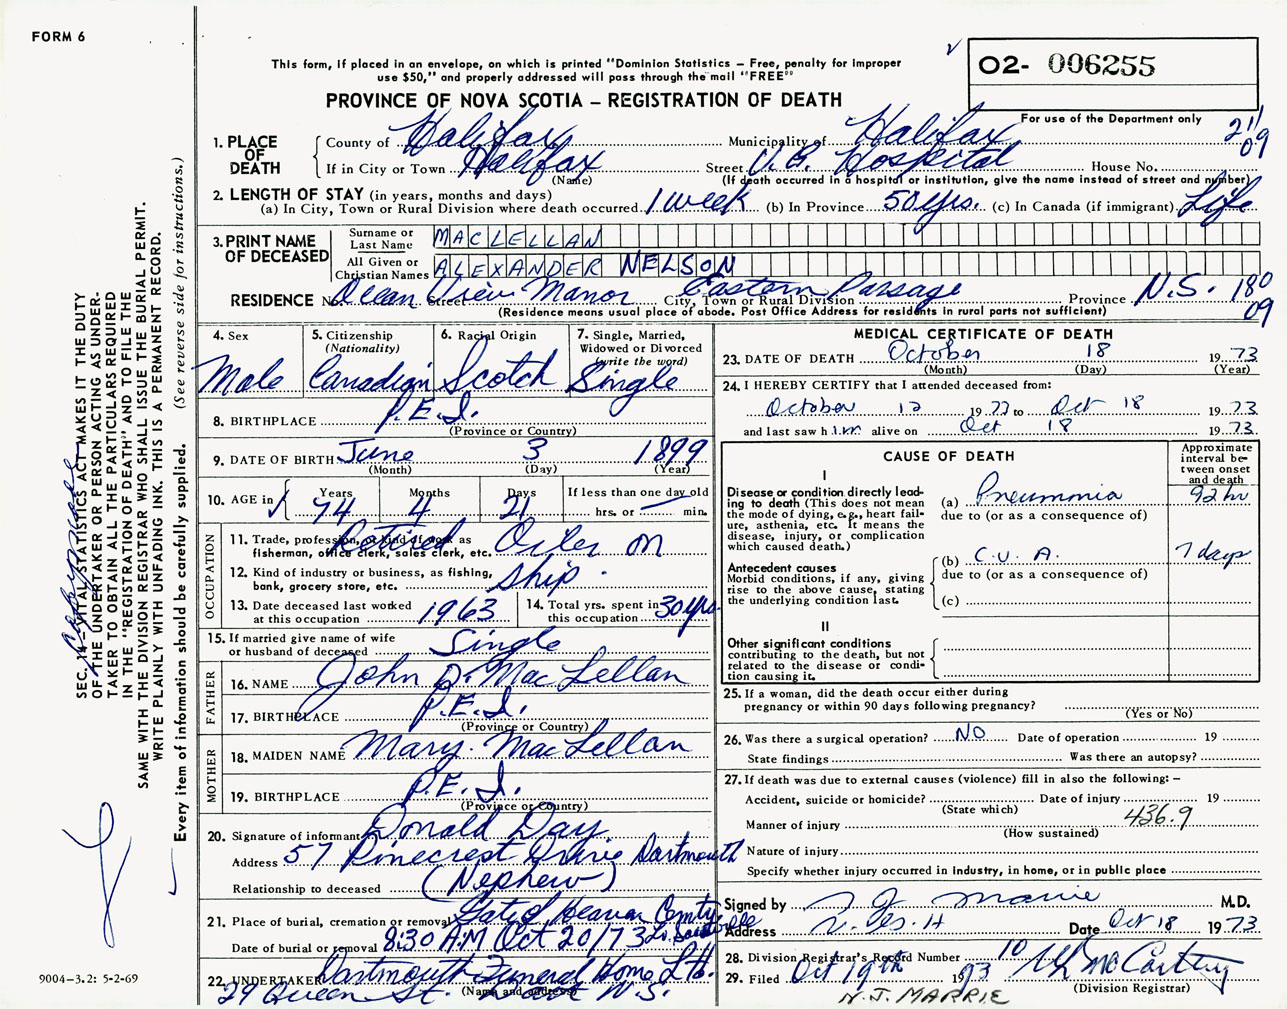 FORM 6
This form, if placed in an envelope, on which is printed "Dominion Statistics – Free, penalty for improper
use $50," and properly addressed will pass through the mail "FREE"
O2- 006255
PROVINCE OF NOVA SCOTIA – REGISTRATION OF DEATH
For use of the Department only
1. PLACE OF DEATH
County of Halifax Municipality of Halifax 211
If in City or Town Halifax Street V.G. Hospital House No. 09
(Name) (If death occurred in a hospital or institution, give the name instead of street and number)
2. LENGTH OF STAY (in years, months and days)
(a) In City, Town or Rural Division where death occurred 1 week (b) In Province 50 yrs. (c) In Canada (if immigrant) Life
3. PRINT NAME OF DECEASED
Surname or Last Name MACLELLAN
All Given or Christian Names ALEXANDER NELSON
RESIDENCE No. Ocean View Manor Street City, Town or Rural Division Eastern Passage Province N.S. 180
(Residence means usual place of abode. Post Office Address for residents in rural parts not sufficient) 09
4. Sex Male
5. Citizenship (Nationality) Canadian
6. Racial Origin Scotch
7. Single, Married, Widowed or Divorced (write the word) Single
8. BIRTHPLACE P.E.I.
(Province or Country)
9. DATE OF BIRTH June 3 1899
(Month) (Day) (Year)
10. AGE in Years 74 Months 4 Days 21 If less than one day old
hrs. or min.
OCCUPATION
11. Trade, profession, or kind of work as Retired Oiler on
fisherman, office clerk, sales clerk, etc.
12. Kind of industry or business, as fishing, ship.
bank, grocery store, etc.
13. Date deceased last worked at this occupation 1963
14. Total yrs. spent in this occupation 30 yrs.
15. If married give name of wife or husband of deceased Single
FATHER
16. NAME John D. MacLellan
17. BIRTHPLACE P.E.I.
(Province or Country)
MOTHER
18. MAIDEN NAME Mary MacLellan
19. BIRTHPLACE P.E.I.
(Province or Country)
20. Signature of informant Donald Day
Address 57 Pinecrest Drive Dartmouth
Relationship to deceased (Nephew)
21. Place of burial, cremation or removal Gate of Heaven Cemty L. Sackville
Date of burial or removal 8:30 A.M Oct 20/73
22. UNDERTAKER Dartmouth Funeral Home Ltd.
29 Queen St. Dart N.S.
(Name and address)
MEDICAL CERTIFICATE OF DEATH
23. DATE OF DEATH October 18 1973
(Month) (Day) (Year)
24. I HEREBY CERTIFY that I attended deceased from:
October 12 1973 to Oct 18 1973
and last saw him alive on Oct 18 1973
CAUSE OF DEATH
Approximate interval between onset and death
I
Disease or condition directly leading to death (This does not mean the mode of dying, e.g., heart failure, asthenia, etc. It means the disease, injury, or complication which caused death.)
(a) Pneumonia 92 hr
due to (or as a consequence of)
Antecedent causes
Morbid conditions, if any, giving rise to the above cause, stating the underlying condition last.
(b) C.V.A. 7 days
due to (or as a consequence of)
(c)
II
Other significant conditions
contributing to the death, but not related to the disease or condition causing it.
25. If a woman, did the death occur either during
pregnancy or within 90 days following pregnancy?
(Yes or No)
26. Was there a surgical operation? NO Date of operation 19
State findings Was there an autopsy?
27. If death was due to external causes (violence) fill in also the following: –
Accident, suicide or homicide? Date of injury 19
(State which) 436.9
Manner of injury
(How sustained)
Nature of injury
Specify whether injury occurred in industry, in home, or in public place
Signed by M.D.
Address V.G.H Date Oct 18 1973
28. Division Registrar's Record Number 10
29. Filed Oct 19th 1973 McCarthy
(Division Registrar)
N.J. MARRIE
SEC. 14 – VITAL STATISTICS ACT MAKES IT THE DUTY
OF THE UNDERTAKER OR PERSON ACTING AS UNDER-
TAKER TO OBTAIN ALL THE PARTICULARS REQUIRED
IN THE "REGISTRATION OF DEATH" AND TO FILE THE
SAME WITH THE DIVISION REGISTRAR WHO SHALL ISSUE THE BURIAL PERMIT.
WRITE PLAINLY WITH UNFADING INK. THIS IS A PERMANENT RECORD.
Every item of information should be carefully supplied. (See reverse side for instructions.)
9004–3.2: 5-2-69